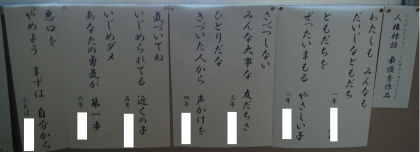 人権標語 最優秀作品
わたしも みんなも
だいじなともだち
一年
ともだちを
ぜったいまもる やさしい子
二年
さべつしない
みんな大事な 友だちさ
三年
ひとりだな
きづいた人から 声かけを
四年
気づいてね
いじめられてる 近くの子
五年
いじめダメ
あなたの勇気が 第一歩
六年
悪口を
やめよう まずは 自分から